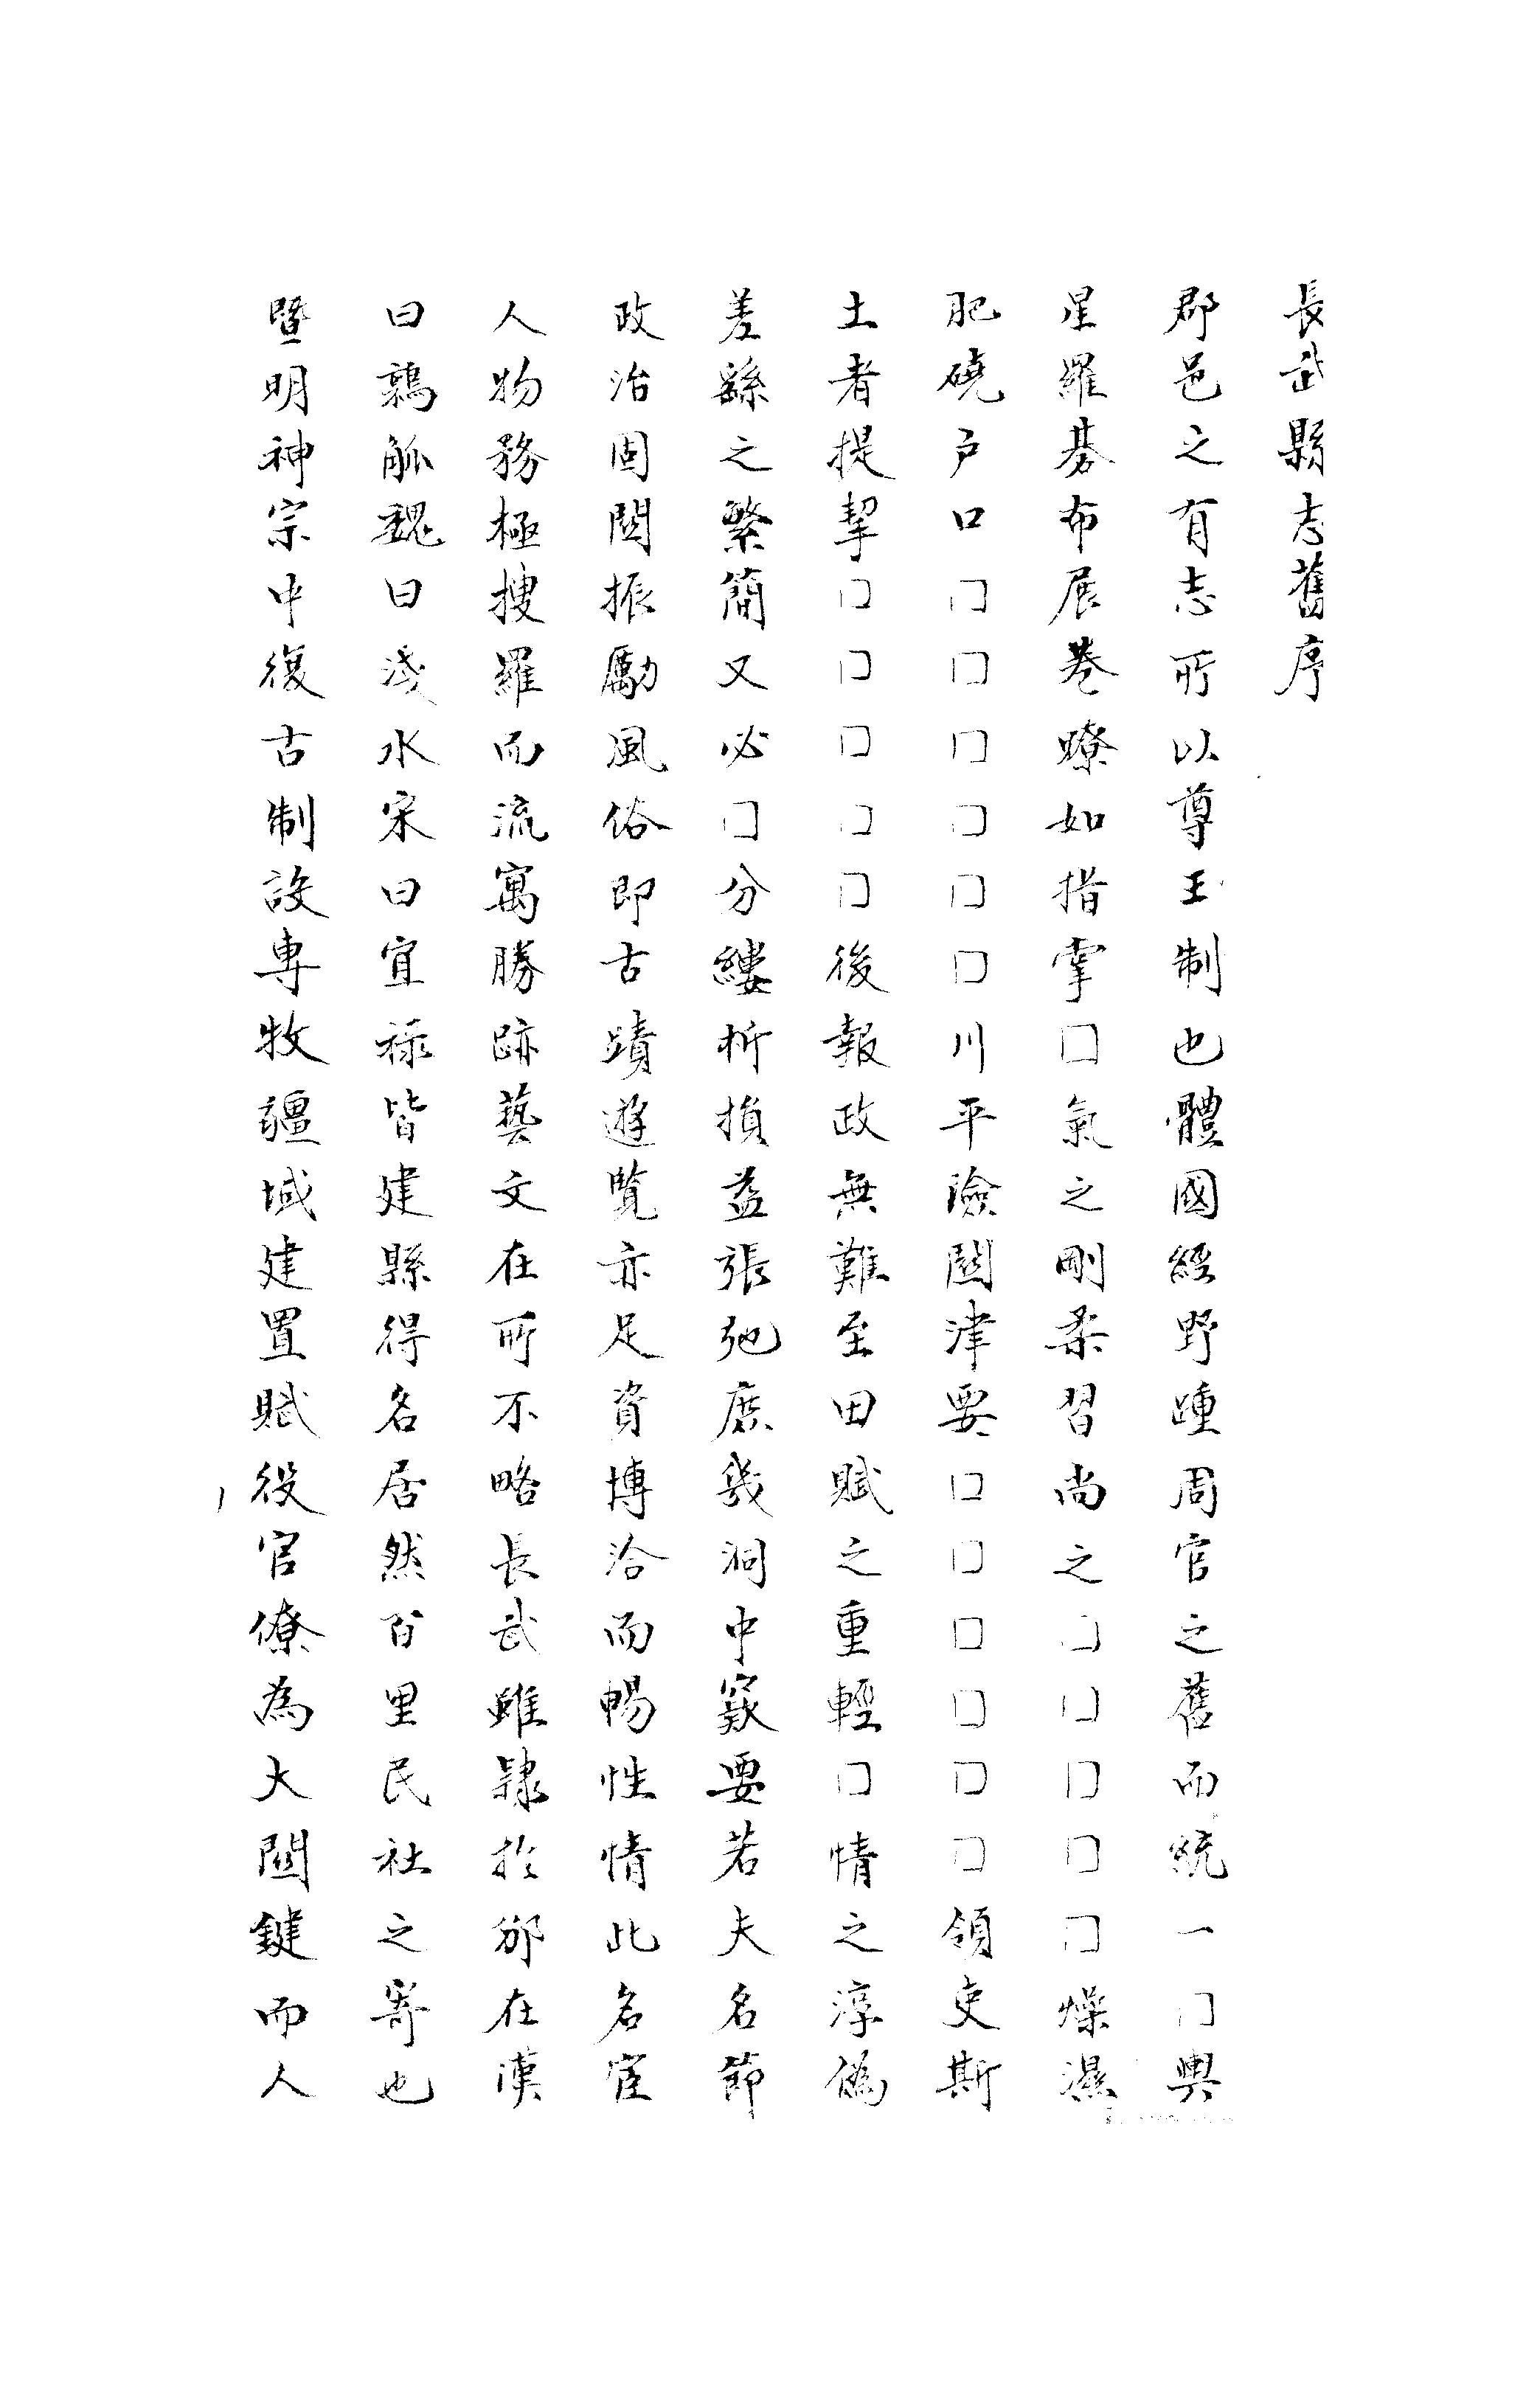 長武縣志舊序
郡邑之有志所以尊王制也體國經野踵周官之舊而統一□輿
星羅碁布展卷瞭如指掌□氣之剛柔習尚之□□□□□燥濕
肥磽户口□□□□□□川平險關津要□□□□□□領吏斯
土者提挈□□□□□後報政無難至田賦之重輕□情之淳偽
差繇之繁簡又必□分縷析損益張弛庶幾洞中窾要若夫名節
政治固關振勵風俗即古蹟遊覽亦足資博洽而暢性情此名宦
人物務極搜羅而流寓勝跡藝文在所不略長武雖隸於邠在漢
曰鶉觚魏曰淺水宋曰宜祿皆建縣得名居然百里民社之寄也
暨明神宗中復古制設專牧疆域建置賦役官僚為大關鍵而人